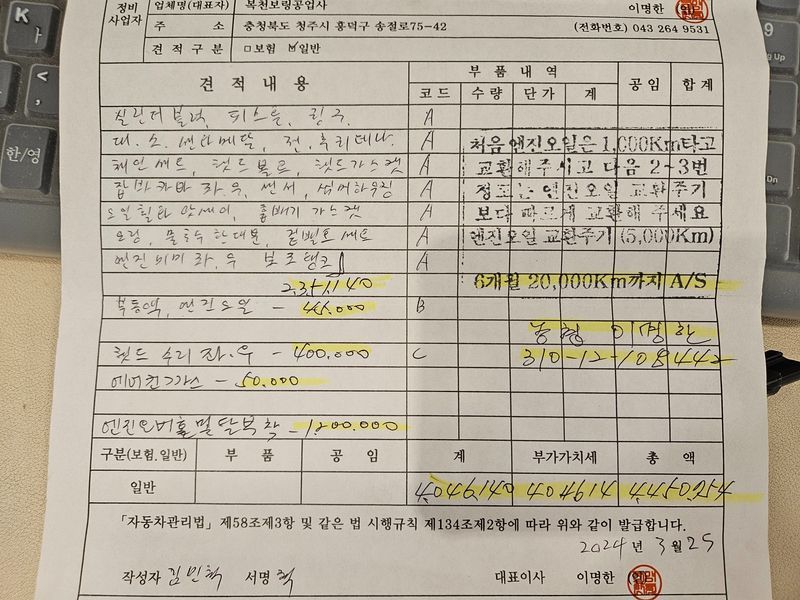 정비 사업자
업체명(대표자) 복천보링공업사 이명한 (인)
주 소 충청북도 청주시 흥덕구 송절로75-42 (전화번호) 043 264 9531
견적구분 □보험 ☑일반
견적내용 부품내역 공임 합계
코드 수량 단가 계
실린더블럭, 피스톤, 링구 A
대.소.센타메탈, 전.후리데나 A 처음엔진오일은 1,000Km타고
체인세트, 헷드볼트, 헷드가스켓 A 교환해주시고 다음 2~3번
잠바카바 좌.우, 센서, 써머하우징 A 정도는 엔진오일 교환주기
오일휠타 앗세이, 훕빼기 가스켓 A 보다 빠르게 교환해 주세요
오링, 물호수 한대분, 겉벨트세트 A 엔진오일 교환주기 (5,000Km)
엔진미미 좌.우 보조탱크 A
2351140 6개월 20,000Km까지 A/S
부동액, 엔진오일 - B
농협 이명한
헷드 수리 좌.우 - 400.000 C 310-12-108442
에어컨가스 - 50.000
엔진오버홀 및 탈부착 - 1,200.000
구분(보험.일반) 부 품 공 임 계 부가가치세 총 액
일반 4049140 404914 4450054
「자동차관리법」 제58조제3항 및 같은 법 시행규칙 제134조제2항에 따라 위와 같이 발급합니다.
2024년 3월 25
작성자 김민혁 서명 혁 대표이사 이명한 (인)
K ㅏ
< ,
한/영
9